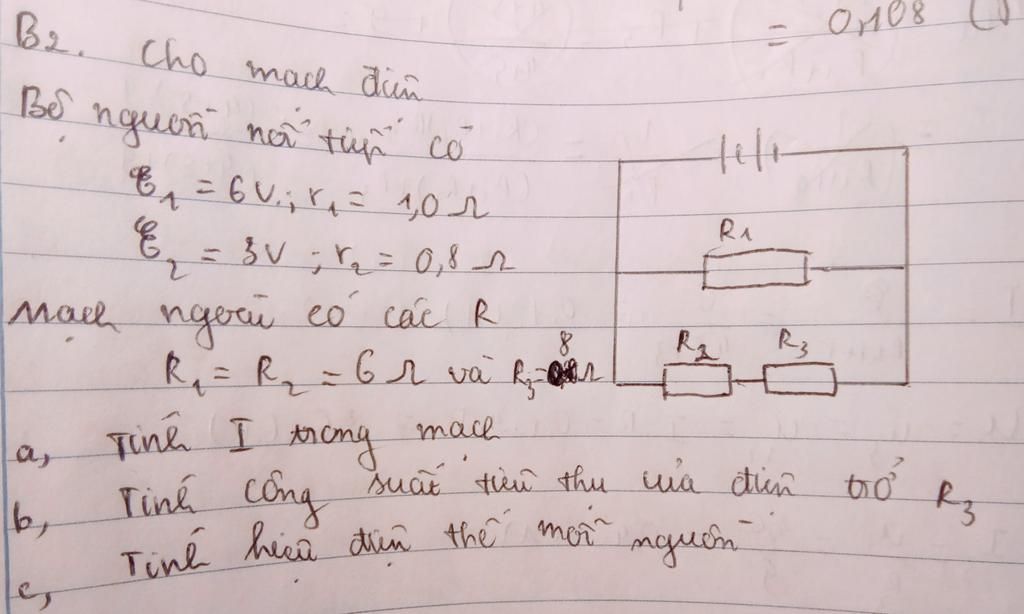 = 0,108 ()
B2. Cho mạch điện
Bộ nguồn nối tiếp có
ℰ1 = 6V ; r1 = 1,0 Ω
ℰ2 = 3V ; r2 = 0,8 Ω
Mạch ngoài có các R
R1 = R2 = 6 Ω và R3 = 8 Ω
R1
R2 R3
a, Tính I trong mạch
b, Tính công suất tiêu thụ của điện trở R3
c, Tính hiệu điện thế mỗi nguồn